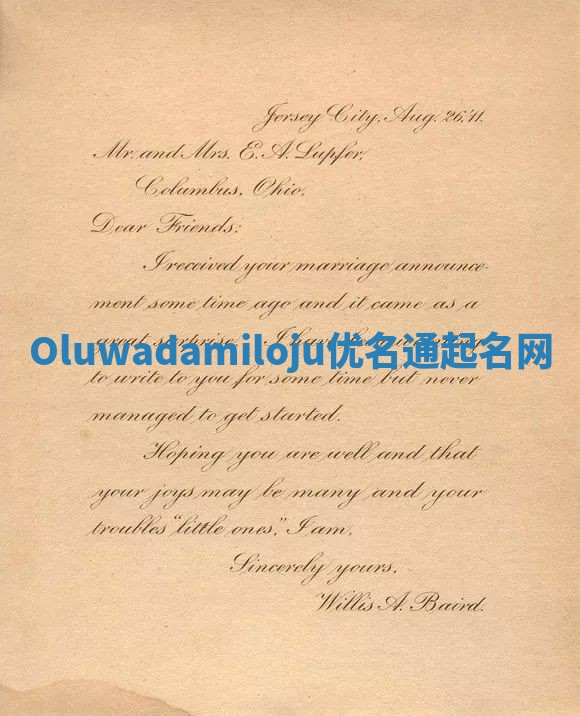 Jersey City, Aug. 26, '11.
Mr. and Mrs. E. A. Lupfer,
Columbus, Ohio.
Dear Friends:
I received your marriage announce-
ment some time ago and it came as a
great surprise. I have
Oluwadamiloju优名通起名网
to write to you for some time but never
managed to get started.
Hoping you are well and that
your joys may be many and your
troubles "little ones," I am,
Sincerely yours,
Willis A. Baird.